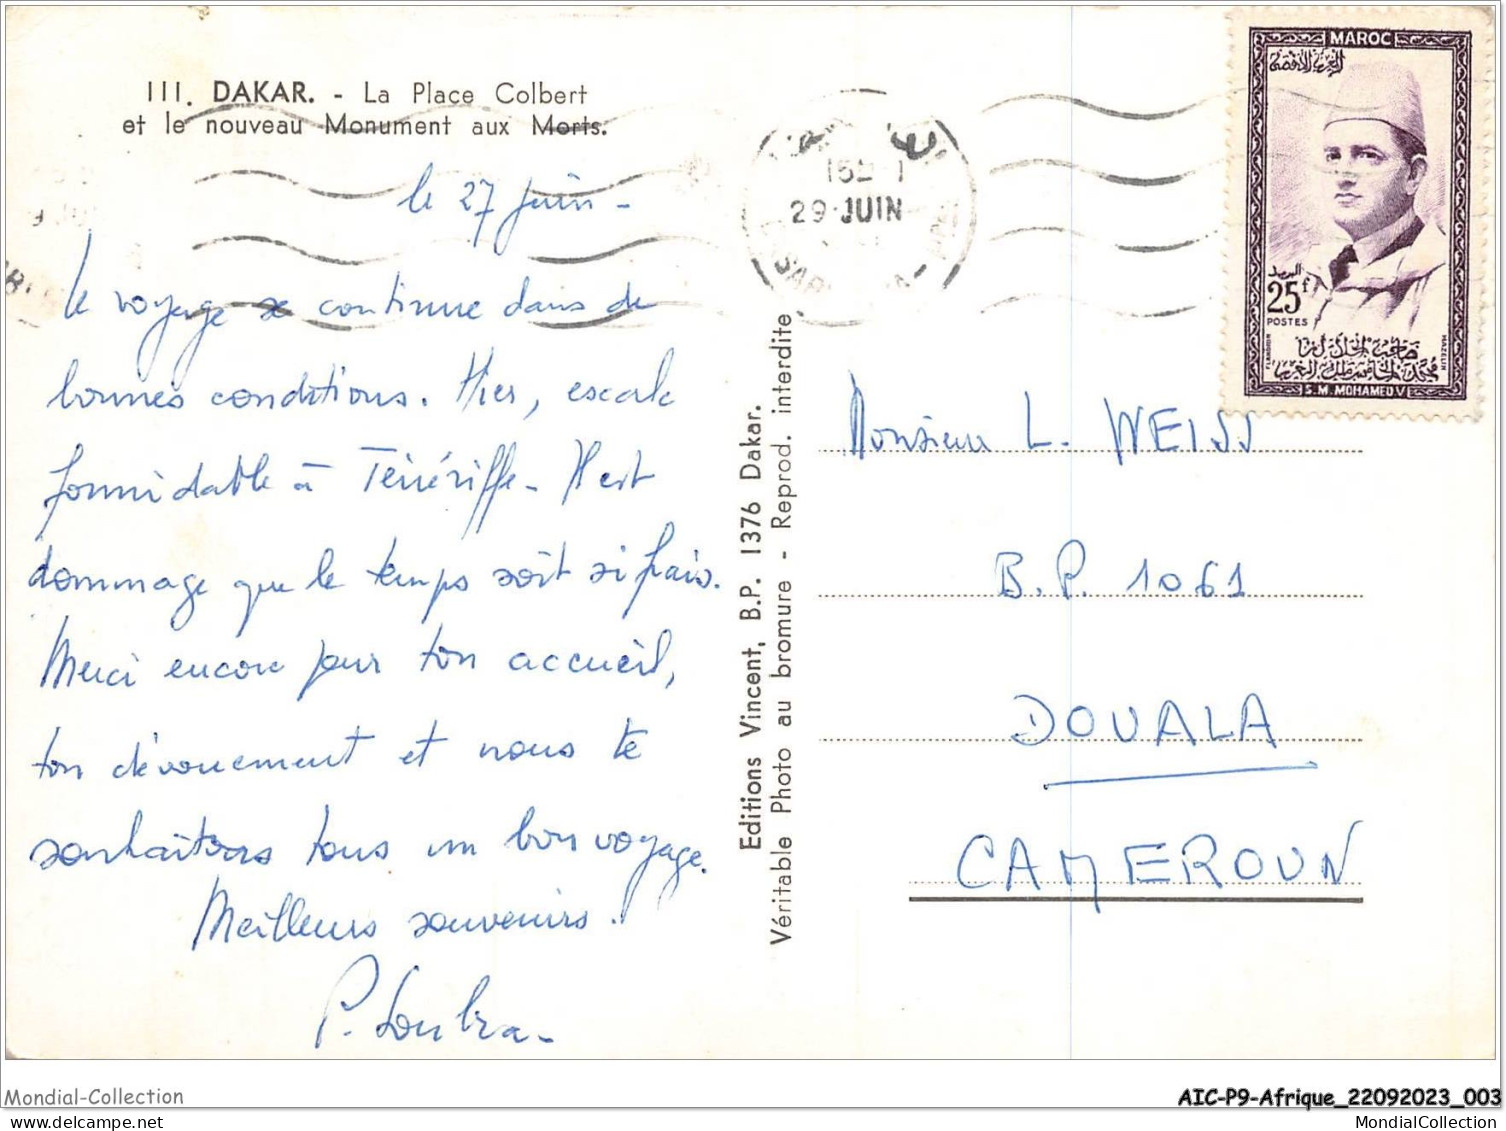 111. DAKAR. - La Place Colbert
et le nouveau Monument aux Morts.
le 27 juin -
Le voyage se continue dans de
bonnes conditions. Hier, escale
formidable à Ténériffe - Il est
dommage que le temps soit si frais.
Merci encore pour ton accueil,
ton dévouement et nous te
souhaitons tous un bon voyage.
Meilleurs souvenirs.
Editions Vincent, B.P. 1376 Dakar.
Véritable Photo au bromure - Reprod. interdite
29 JUIN
MAROC
المغرب الأقصى
البريد
25f
POSTES
صاحب الجلالة
محمد الخامس ملك المغرب
S.M. MOHAMED V
MAZELIN
Monsieur L. WEISS
B.P. 1061
DOUALA
CAMEROUN
Mondial-Collection
AIC-P9-Afrique_22092023_003
MondialCollection